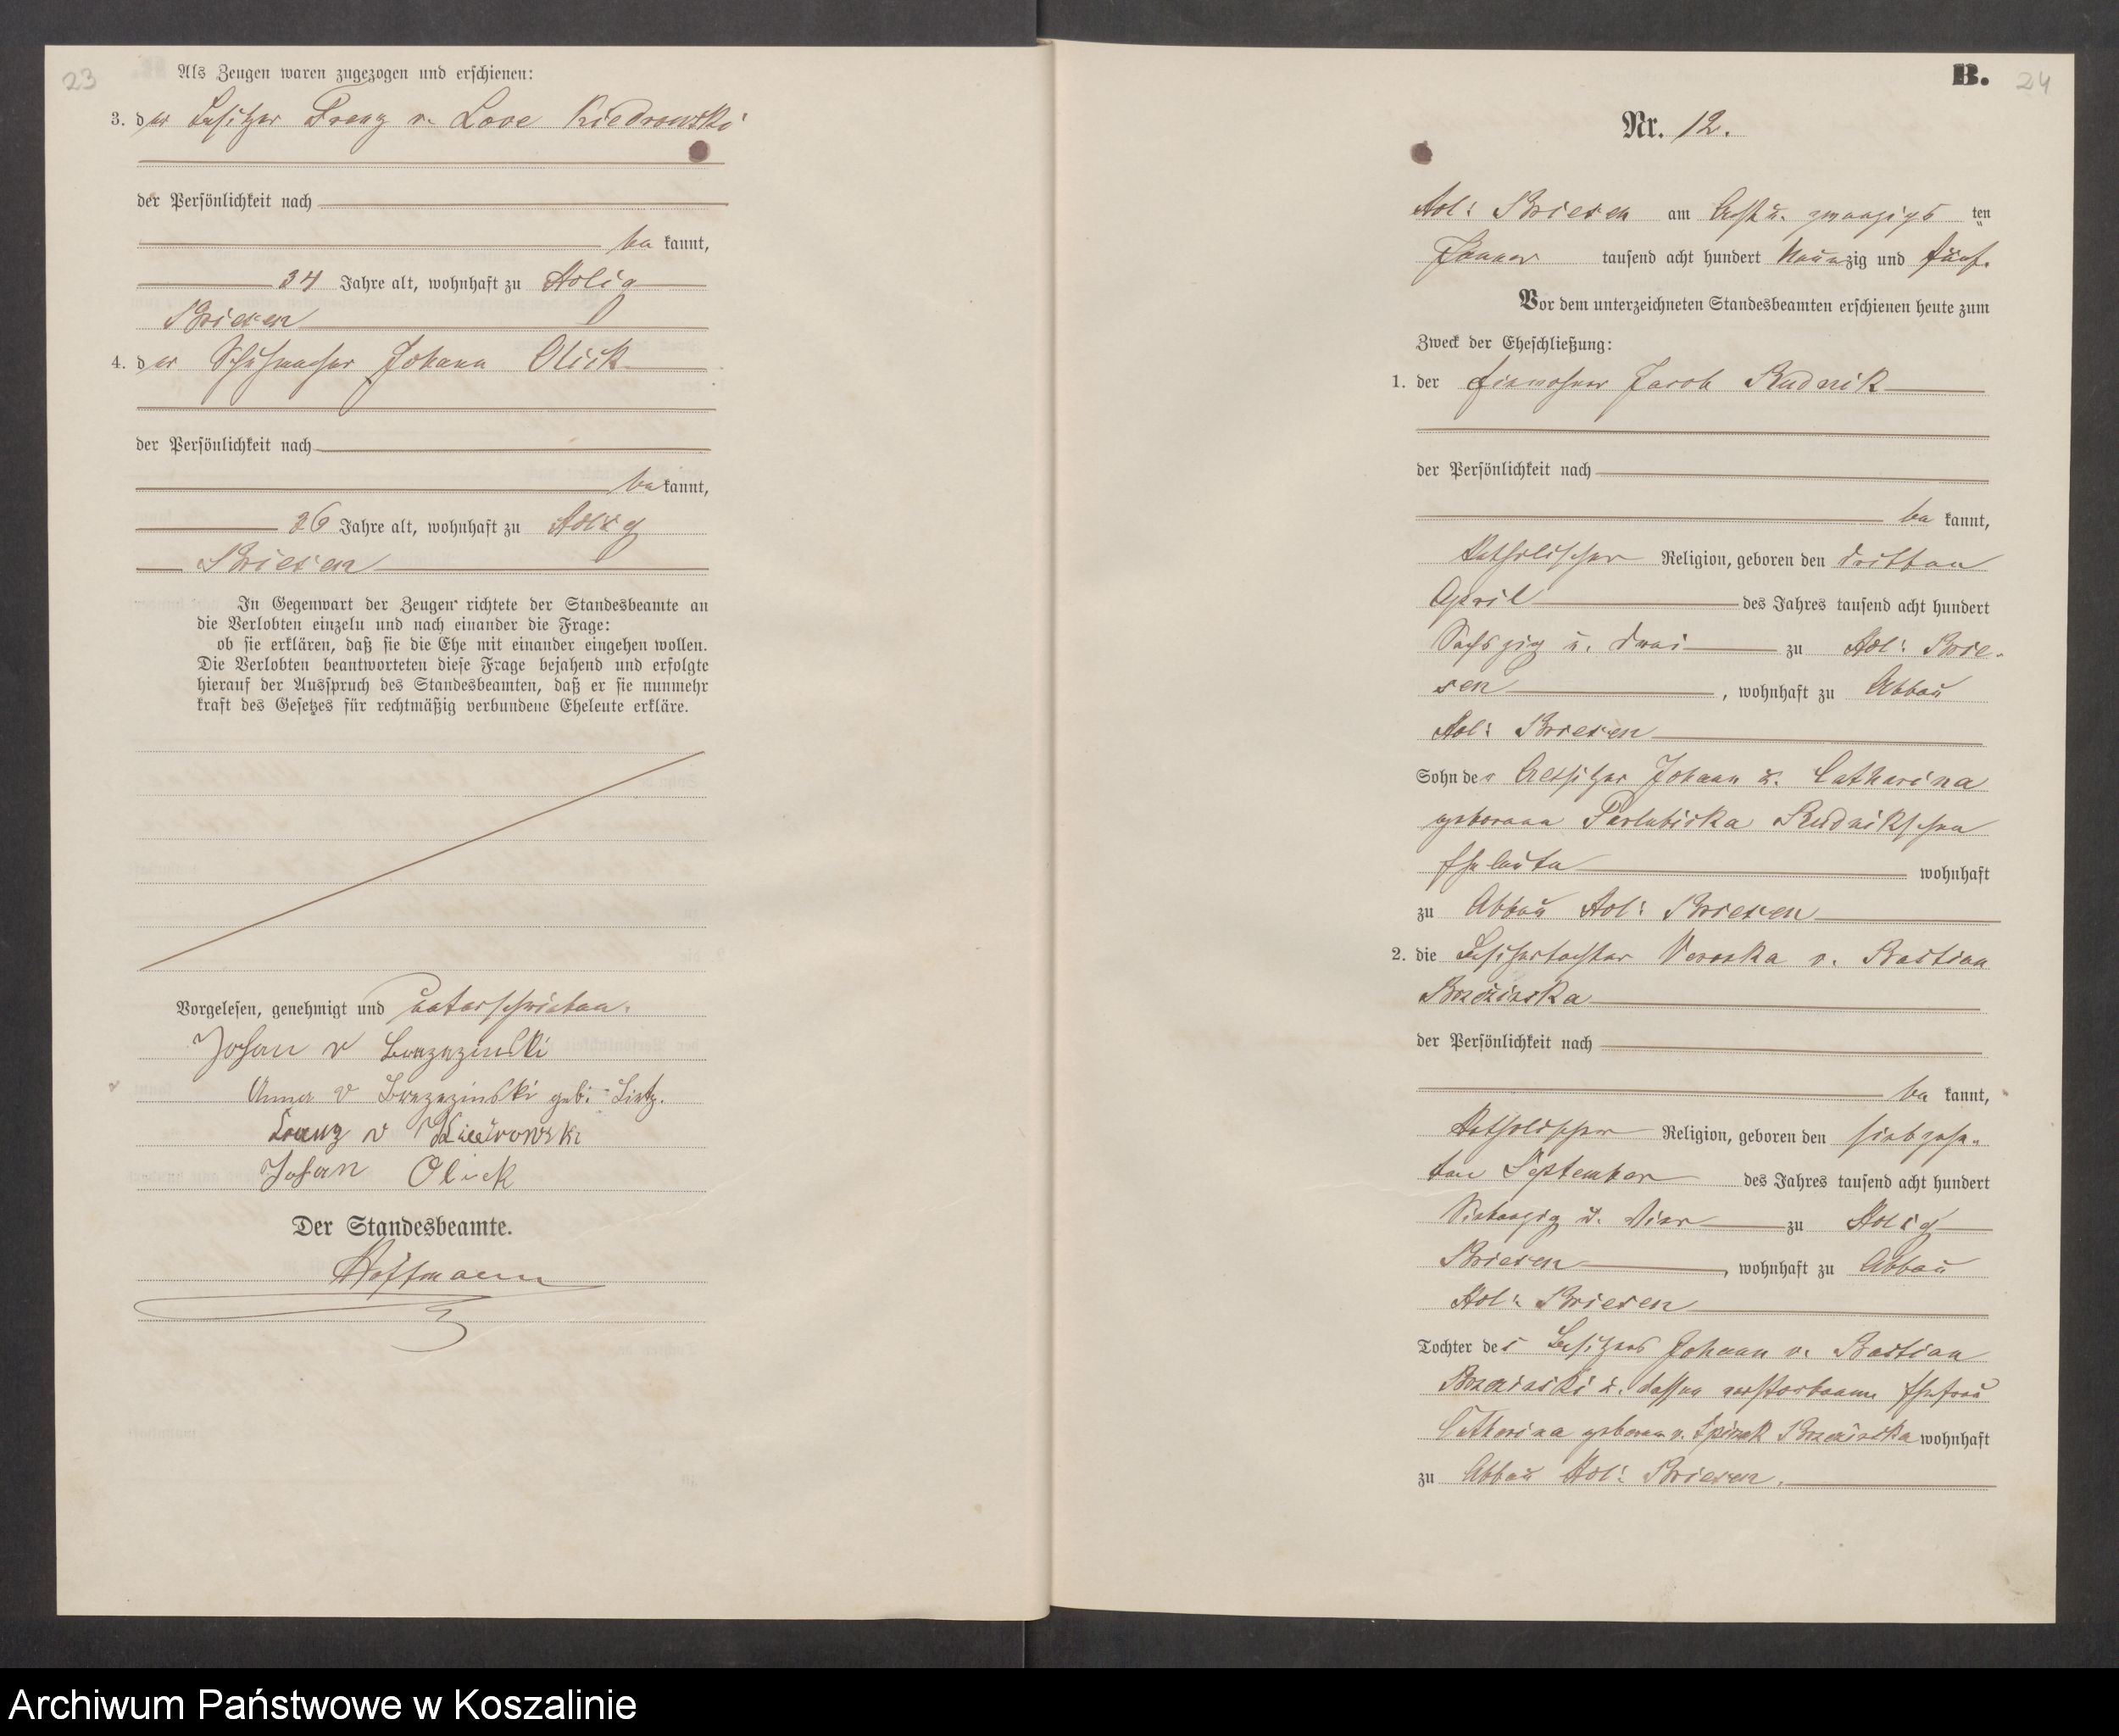 23
Als Zeugen waren zugezogen und erschienen:
3. der Besitzer Franz v. Love Kiedrowski
der Persönlichkeit nach
be kannt,
34 Jahre alt, wohnhaft zu Adlig
Briesen
4. der Schuhmacher Johann Olick
der Persönlichkeit nach
be kannt,
36 Jahre alt, wohnhaft zu Adlig
Briesen
In Gegenwart der Zeugen richtete der Standesbeamte an
die Verlobten einzeln und nach einander die Frage:
ob sie erklären, daß sie die Ehe mit einander eingehen wollen.
Die Verlobten beantworteten diese Frage bejahend und erfolgte
hierauf der Ausspruch des Standesbeamten, daß er sie nunmehr
kraft des Gesetzes für rechtmäßig verbundene Eheleute erkläre.
Vorgelesen, genehmigt und unterschrieben.
Johan v
Anna v geb:
Franz v Kiedrowski
Johan Olick
Der Standesbeamte.
Hoffmann
B. 24
Nr. 12.
Adl: Briesen am Acht u. zwanzigsten
Januar tausend acht hundert Neunzig und fünf.
Vor dem unterzeichneten Standesbeamten erschienen heute zum
Zweck der Eheschließung:
1. der Einwohner Jacob Rudnik
der Persönlichkeit nach
be kannt,
Katholischer Religion, geboren den dritten
April des Jahres tausend acht hundert
Sechszig u. drei zu Adl: Brie-
sen, wohnhaft zu Abbau
Adl: Briesen
Sohn der Altsitzer Johann u. Catharina
geborene Rudnikschen
Eheleute wohnhaft
zu Abbau Adl: Briesen
2. die Besitzertochter Veronka v. Bastian
der Persönlichkeit nach
be kannt,
Katholischer Religion, geboren den siebzehn-
ten September des Jahres tausend acht hundert
Siebenzig u. vier zu Adlig
Briesen, wohnhaft zu Abbau
Adl: Briesen
Tochter des Besitzers Johann v. Bastian
u. dessen verstorbenen Ehefrau
Catharina geboren v. wohnhaft
zu Abbau Adl: Briesen.
Archiwum Państwowe w Koszalinie